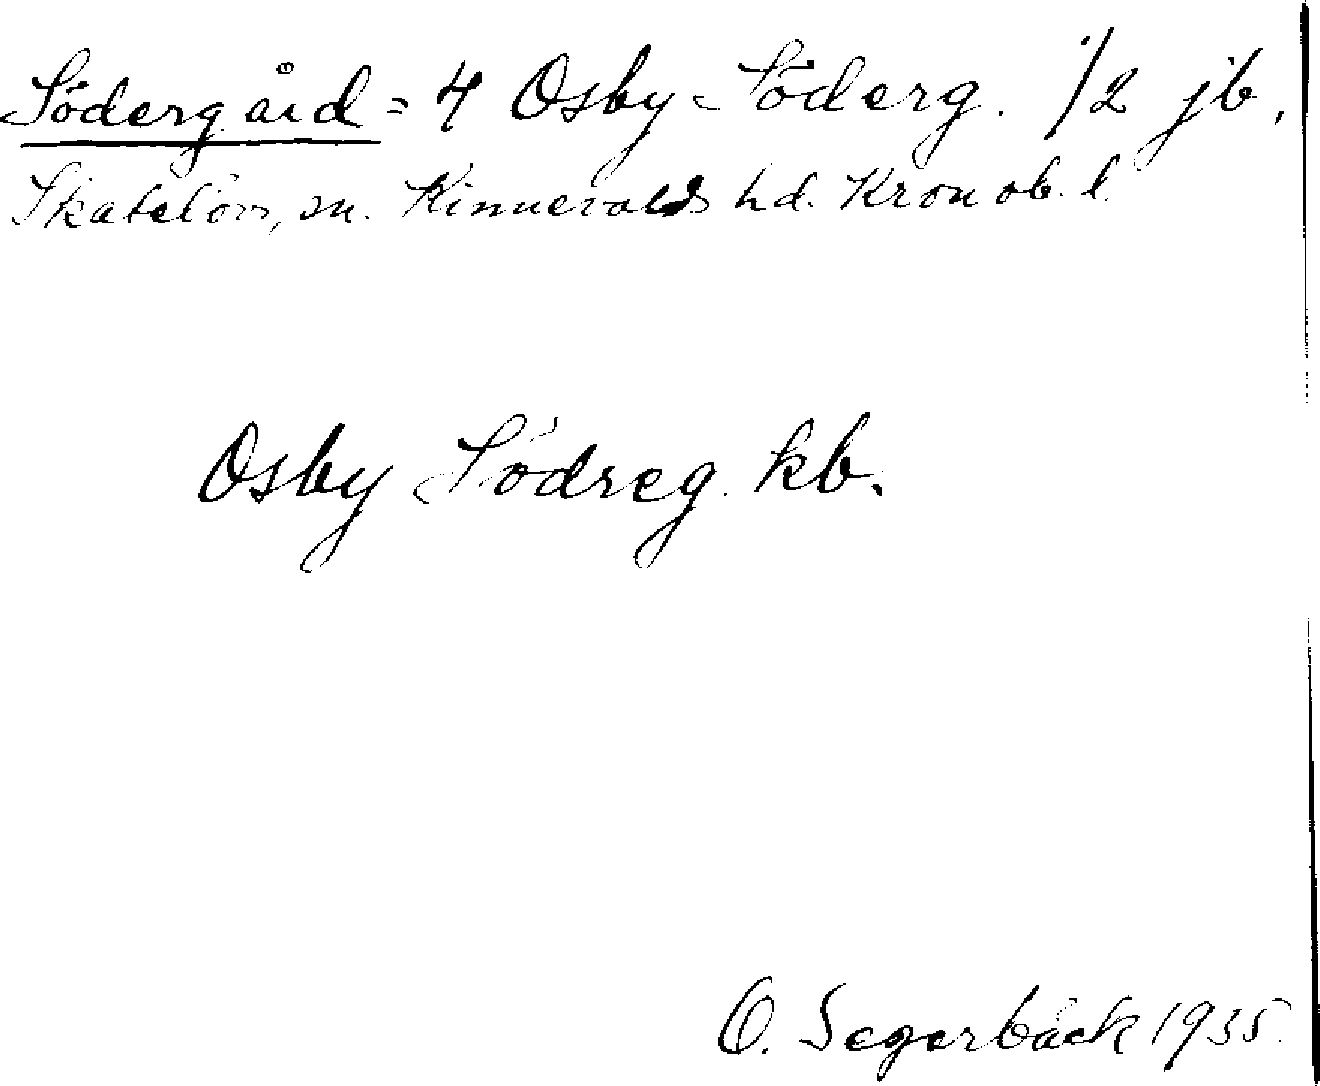 Södergård = 4 Osby-Söderg. 1/2 jb.
Skatelövs sn. Kinnevalds hd. Kronob. l.
Osby Södreg. kb.
O. Segerbäck 1935.